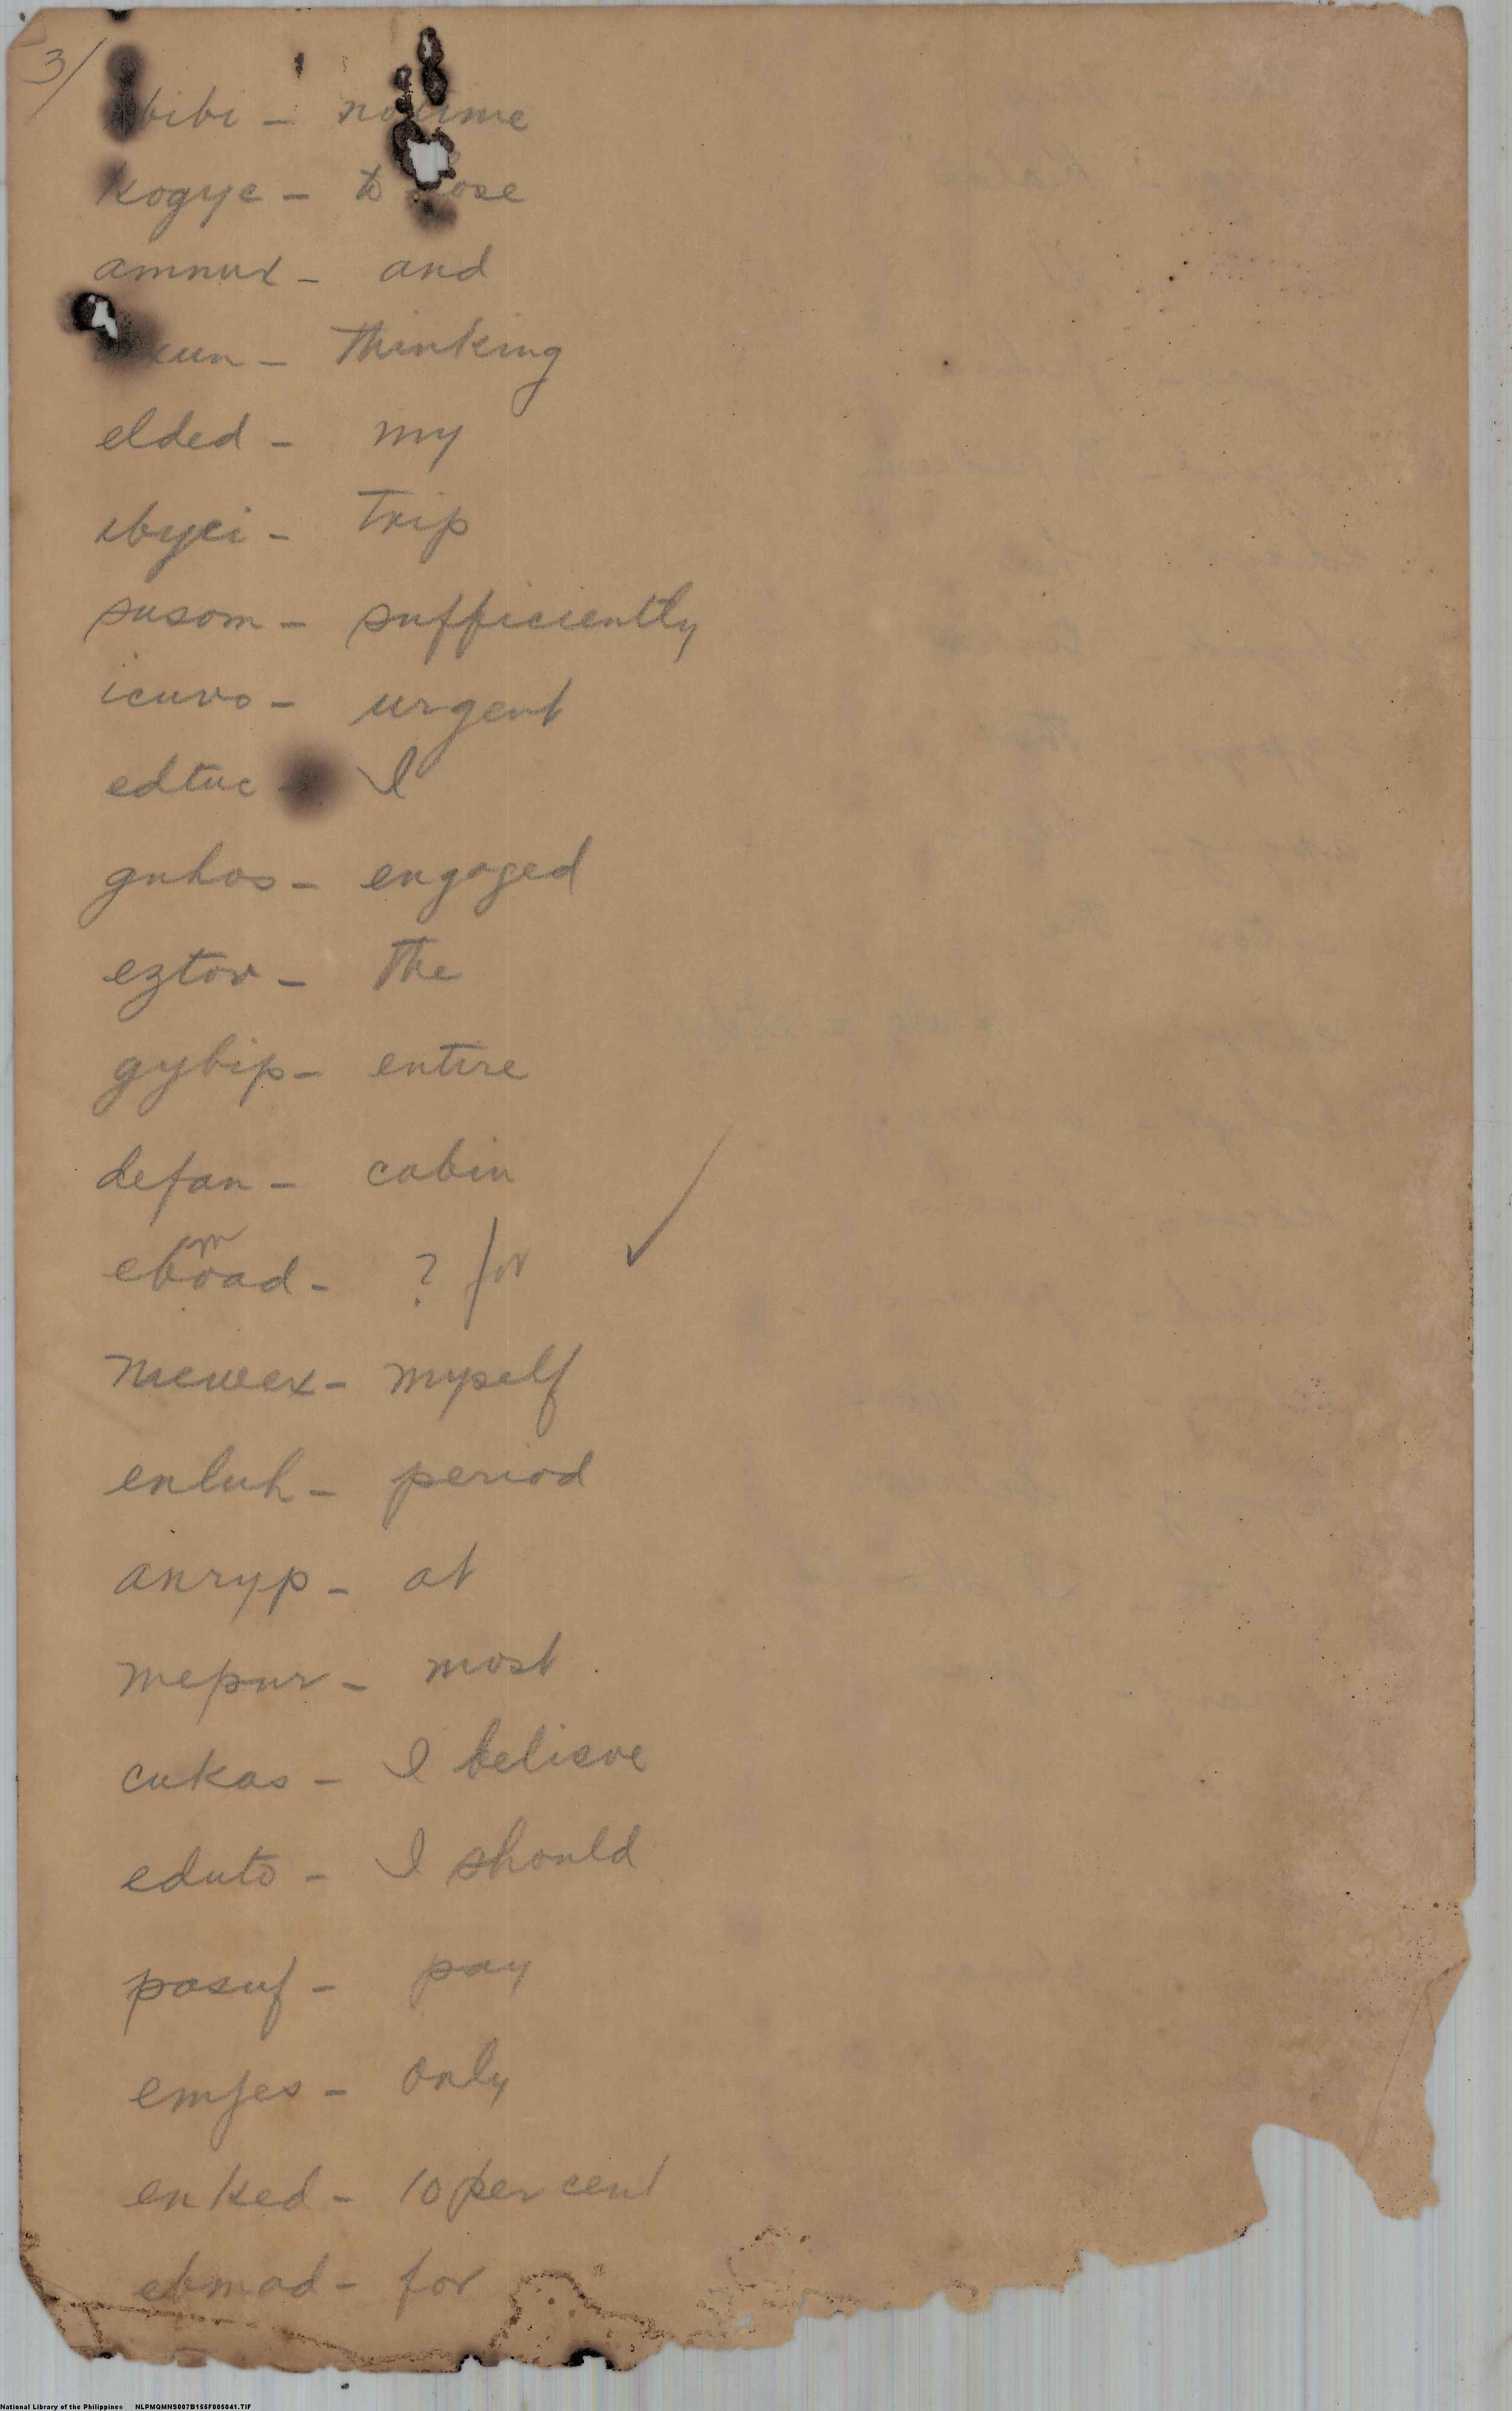 3/
bibi – no time
kogyc – to lose
amnux – and
xun – Thinking
elded – my
ibyci – Trip
susom – sufficiently
icuvo – urgent
edtuc – I
guhos – engaged
eztov – The
gybip – entire
defan – cabin
m
eboad – ? for ✓
mewex – myself
enluh – period
anryp – at
mepur – most
cukas – I believe
eduto – I should
pasuf – pay
emjes – only
enked – 10 per cent
ebmad – for
National Library of the Philippines NLPMQMNS007B155F005041.TIF